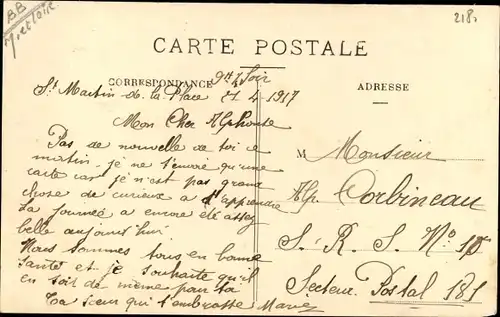 BB
218
CARTE POSTALE
CORRESPONDANCE
ADRESSE
9H Soir
St Martin de la Place 4 1917
Mon Cher Alphonse
Pas de nouvelle de toi ce
matin - je ne t'envoie qu'une
carte car je n'est pas grand
chose de curieux a t'apprendre
La journée a encore été assez
belle aujourd'hui
Nous sommes tous en bonne
santé et je souhaite qu'il
en soit de même pour toi
Ta sœur qui t'embrasse Marie
M Monsieur
Alp. Corbineau
S. R. S. No
Secteur Postal 181